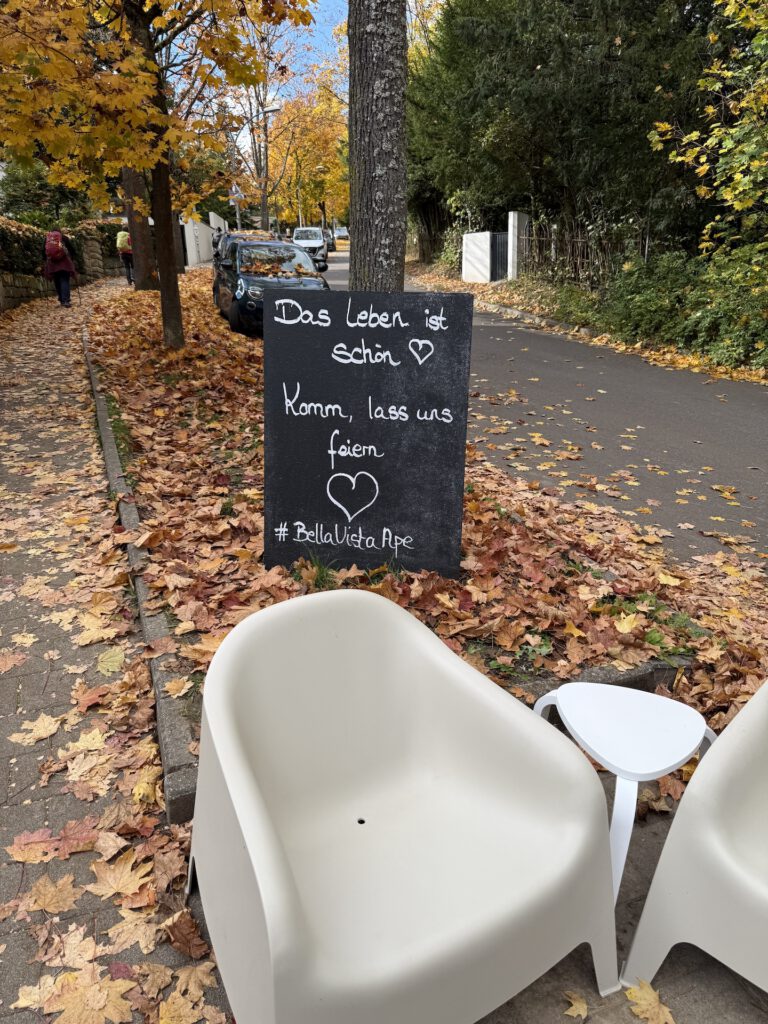 Das Leben ist
schön ♡
Komm, lass uns
feiern
♡
#BellaVistaApe